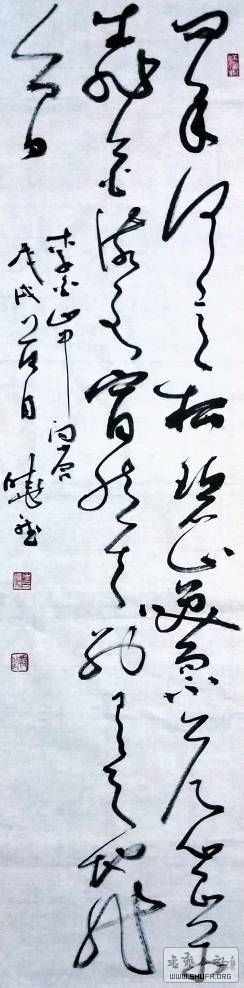 问余何意栖碧山笑而不答心自闲
桃花流水窅然去别有天地非
人间
李白山中问答
戊戌 月 晓
WWW.SHUFA.ORG